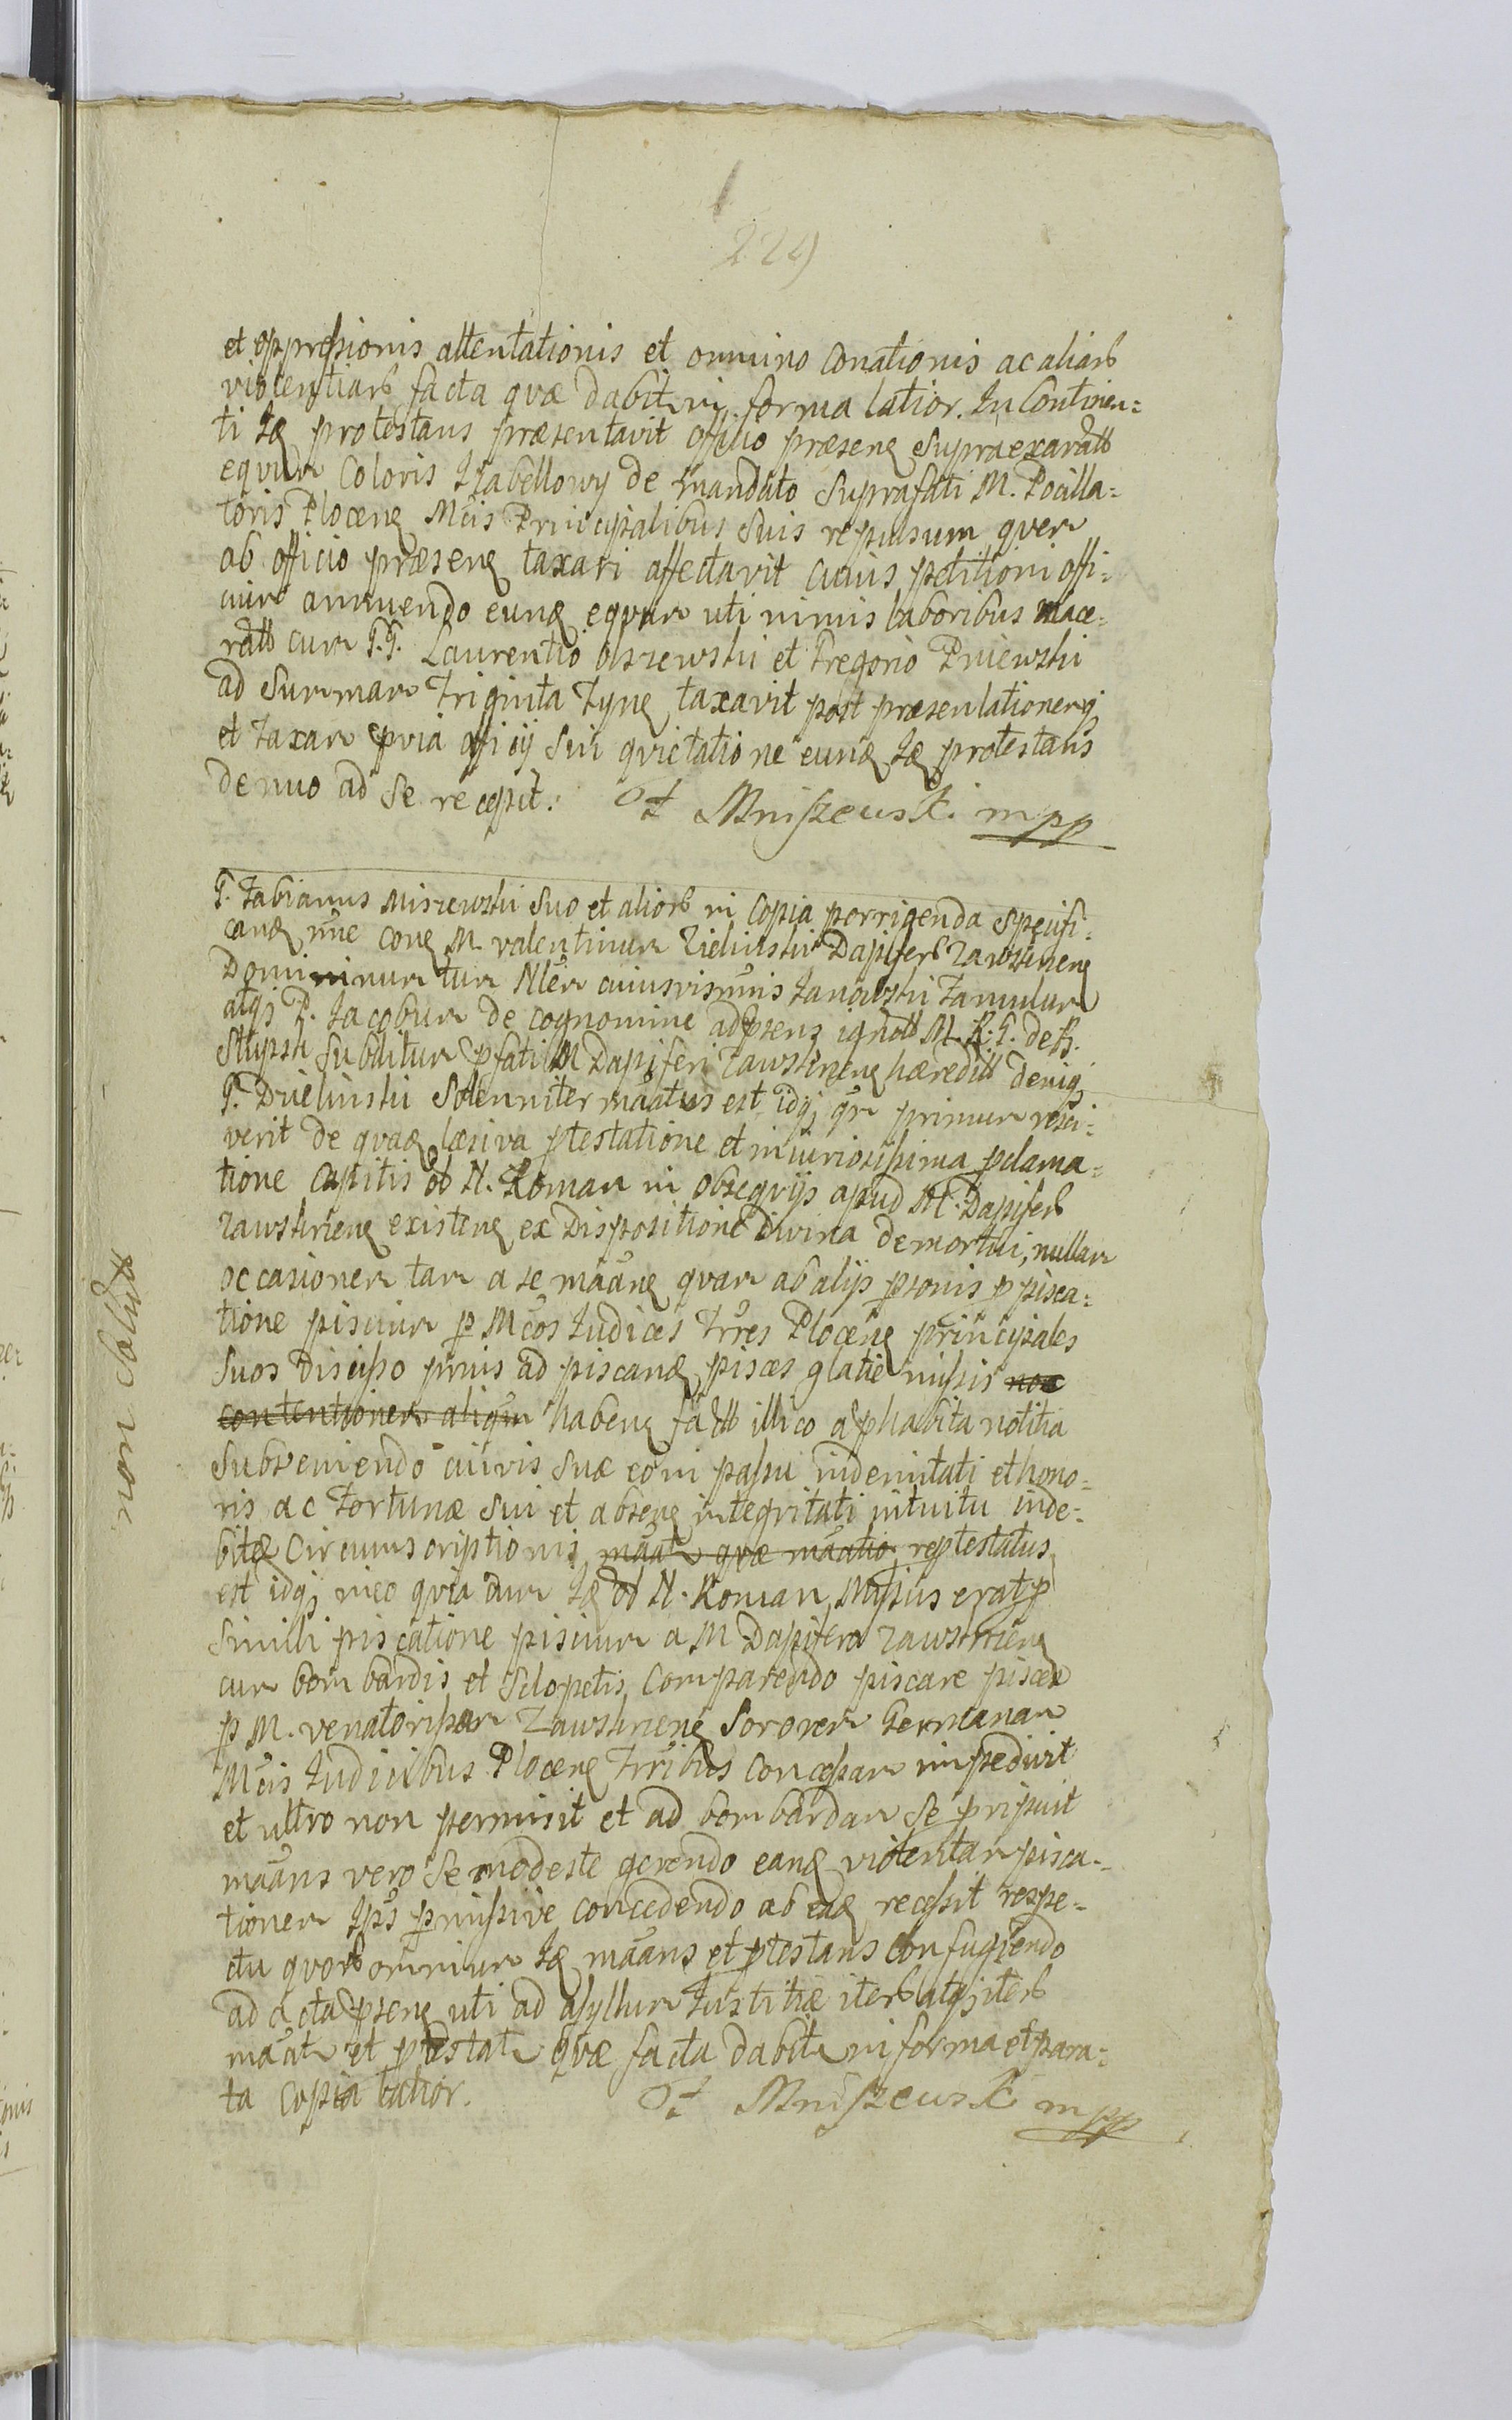 224
et oppressionis attentationis et omnino Conationis ac aliarb
violentiarb facta qvæ dabitr in forma latior. In Continen=
ti Id protestans præsentavit officio præsenq Supraexaratt
eqvum Coloris Izabellowy de mandato Suprafati M. Pocilla=
toris Plocenq Mcis Principalibus Suis repulsum qvem
ab officio præsenq taxari affectavit cuius petitioni offi=
cium annuendo eunq eqvum uti nimis laboribus mace=
ratt cum G.G. Laurentio Olszewski et Gregorio Pniewski
ad Summam Triginta Tynq taxavit post præsentationemq
et Taxam pvia officij Sui qvietatione eunq Id protestans
denuo ad Se recepit. Mniszewski mpp
G. Fabianus Miszewski Suo et aliorb in Copia porrigenda Specifi=
canq nne conq M. valentinum Zielinski Dapiferb Zawskrnenq
Dominum tum Nler cuiusvis nnis Janowski Famulum
atqz P. Jacobum de cognomine ad psens ignott M. R. G. de R.
Slupsk Subditum pfati M Dapiferi Zawskrnenq hæreditt deniqz
G. Dzielinski Solenniter maatus est idqz qr primum resci=
verit de qvaq læsiva ptestatione et iniuriosissima pclama=
tione Capitis ob N. Roman in obseqvijs apud M. Dapiferb
Zawskrnenq existenq ex Dispositione Divina demortui, nullam
occasionem tam a se maanq qvam ab alijs psonis p pisca=
tione piscium p Mcos Iudices Trres Plocenq principales
Suos Discisso prius ad piscanq pisces glacie missis noc
contentionem aliqm habenq fatt illico aphabita notitia
Subveniendo curis Suæ eo in passu indemnitati et hono=
ris ac Fortunæ Sui et absenq integritati intuitu inde=
bitæ Circumscriptionis maatr qvæ maatio reptestatus
est idqz nico qvia dum Id ob N. Roman Missus erat p
Simili piscatione piscium a M Dapifero Zawskrnenq
cum bombardis et Sclopetis Comparendo piscare pisces
p M. venatorissam Zawskrnenq Sororem Germanam
Mcis Iudicibus Plocenq Trribus Concessam impedivit
et ultro non permisit et ad bombardam Se pripuit
maans vero Se modeste gerendo eanq violentam pisca=
tionem Ips pmissive concedendo ab eaq recessit respe=
ctu qvorb omnium Id maans et ptestans Confugiendo
ad acta psenq uti ad asyllum Iustitiæ iterb atqz iterb
maatr et ptestatr qvæ facta dabitr in forma et para=
ta Copia latior. Mniszewski mpp
non Solut